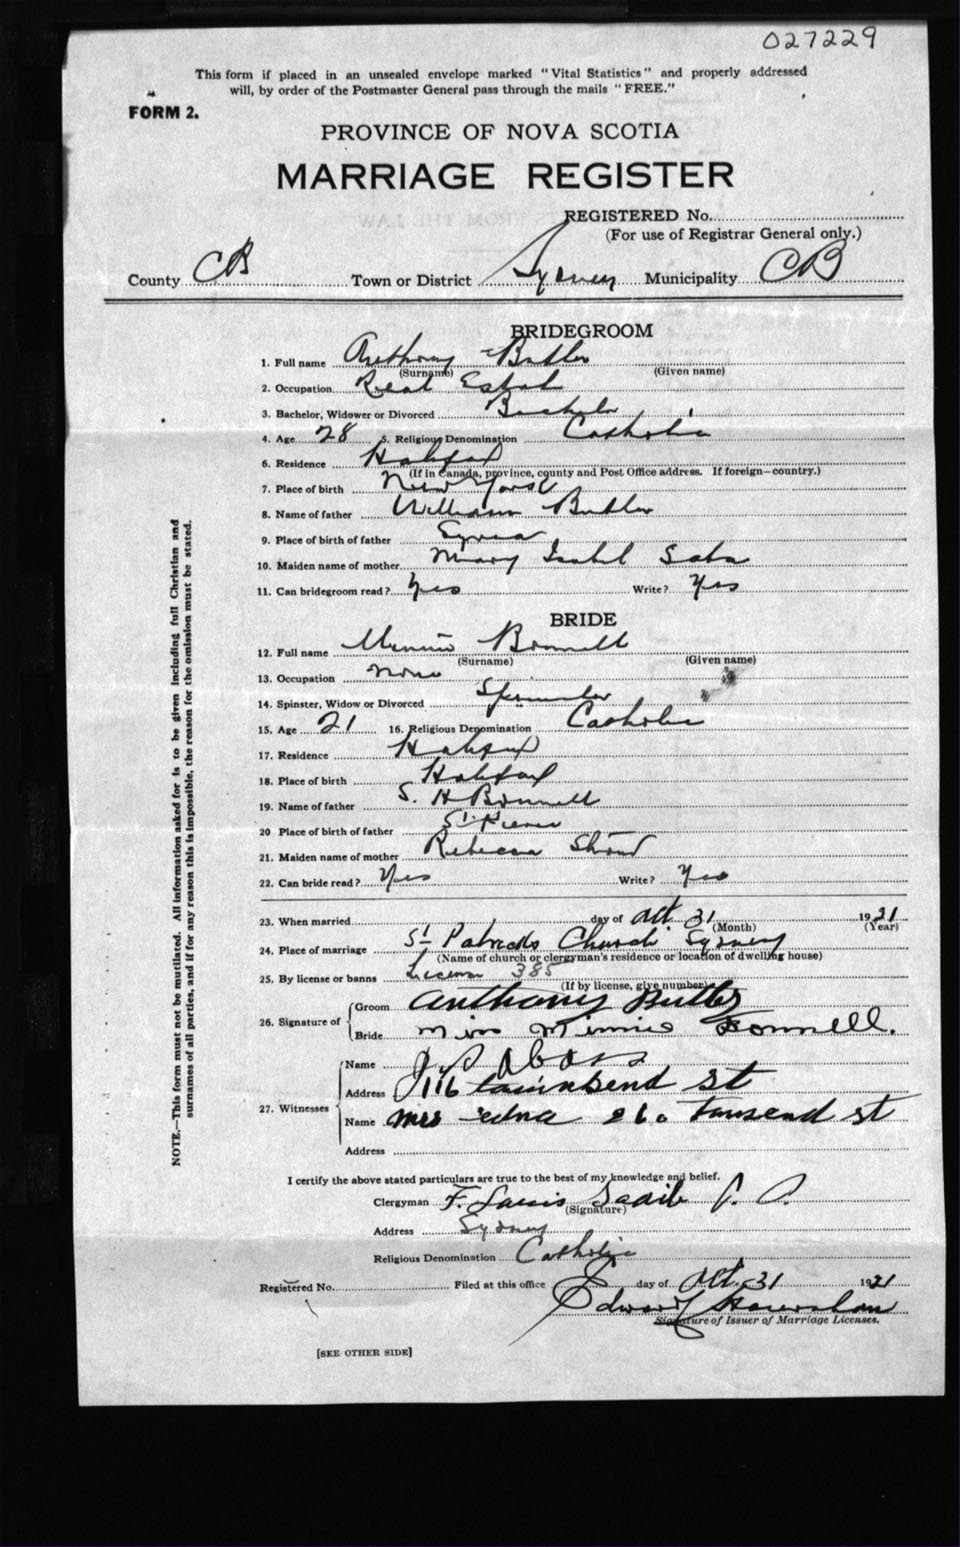 027229
This form if placed in an unsealed envelope marked "Vital Statistics" and properly addressed
will, by order of the Postmaster General pass through the mails "FREE."
FORM 2.
PROVINCE OF NOVA SCOTIA
MARRIAGE REGISTER
REGISTERED No.
(For use of Registrar General only.)
County CB Town or District Sydney Municipality CB
BRIDEGROOM
1. Full name Anthony Butler
(Surname) (Given name)
2. Occupation Real Estate
3. Bachelor, Widower or Divorced Bachelor
4. Age 28 5. Religious Denomination Catholic
6. Residence Halifax
(If in Canada, province, county and Post Office address. If foreign—country.)
7. Place of birth New York
8. Name of father William Butler
9. Place of birth of father Syria
10. Maiden name of mother Mary Isabel Saba
11. Can bridegroom read? Yes Write? Yes
BRIDE
12. Full name Minnie Bonnell
(Surname) (Given name)
13. Occupation None
14. Spinster, Widow or Divorced Spinster
15. Age 21 16. Religious Denomination Catholic
17. Residence Halifax
18. Place of birth Halifax
19. Name of father S. H Bonnell
20 Place of birth of father St. Pierre
21. Maiden name of mother Rebecca
22. Can bride read? Yes Write? Yes
23. When married day of Oct. 31 1921
(Month) (Year)
24. Place of marriage St Patricks Church Sydney
(Name of church or clergyman's residence or location of dwelling house)
25. By license or banns License 385
(If by license, give number)
26. Signature of Groom Anthony Butler
Bride Miss Minnie Bonnell.
27. Witnesses
Name J.
Address 116 townsend St
Name Mrs Edna 260 Tousend st
Address
I certify the above stated particulars are true to the best of my knowledge and belief.
Clergyman F. Saaib P. P.
(Signature)
Address Sydney
Religious Denomination Catholic
Registered No. Filed at this office day of Oct. 31 1921
Edward
Signature of Issuer of Marriage Licenses.
[SEE OTHER SIDE]
NOTE.—This form must not be mutilated. All information asked for is to be given including full Christian and
surnames of all parties, and if for any reason this is impossible, the reason for the omission must be stated.